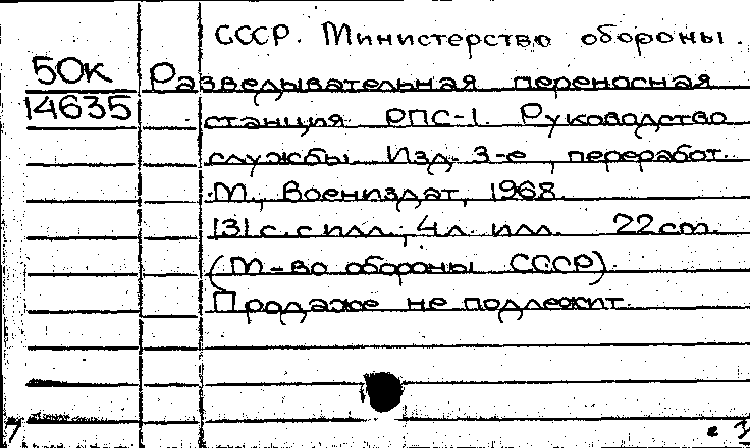 СССР. Министерство обороны.
50к Разведывательная переносная
14635 станция РПС-1. Руководство
службы. Изд. 3-е, переработ.
М., Воениздат, 1968.
131 с. с илл.; 4 л. илл. 22 cm.
(М-во обороны СССР).
Продаже не подлежит.